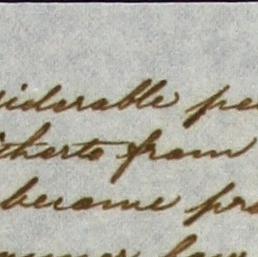 siderable pe
itherto from
become pro